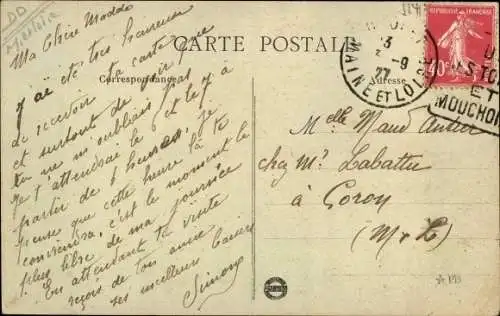 Ma Chère Maddo
J'ai été très heureuse
de recevoir ta carte
et surtout de voir que
tu ne m'oubliais pas
Je t'attendrai le 6 et le 7 à
partir de 1 heure, je
pense que cette heure là te
conviendra, c'est le moment le
plus libre de ma journée
En attendant ta visite
reçois de ton amie
ses meilleurs baisers
Simone
CARTE POSTALE
Correspondance
Adresse
RÉPUBLIQUE FRANÇAISE
40c
3 -9
27
MAINE ET LOIRE
ET
MOUCHOI
Melle Maud
chez Mr Labattu
à Goron
(M & L)